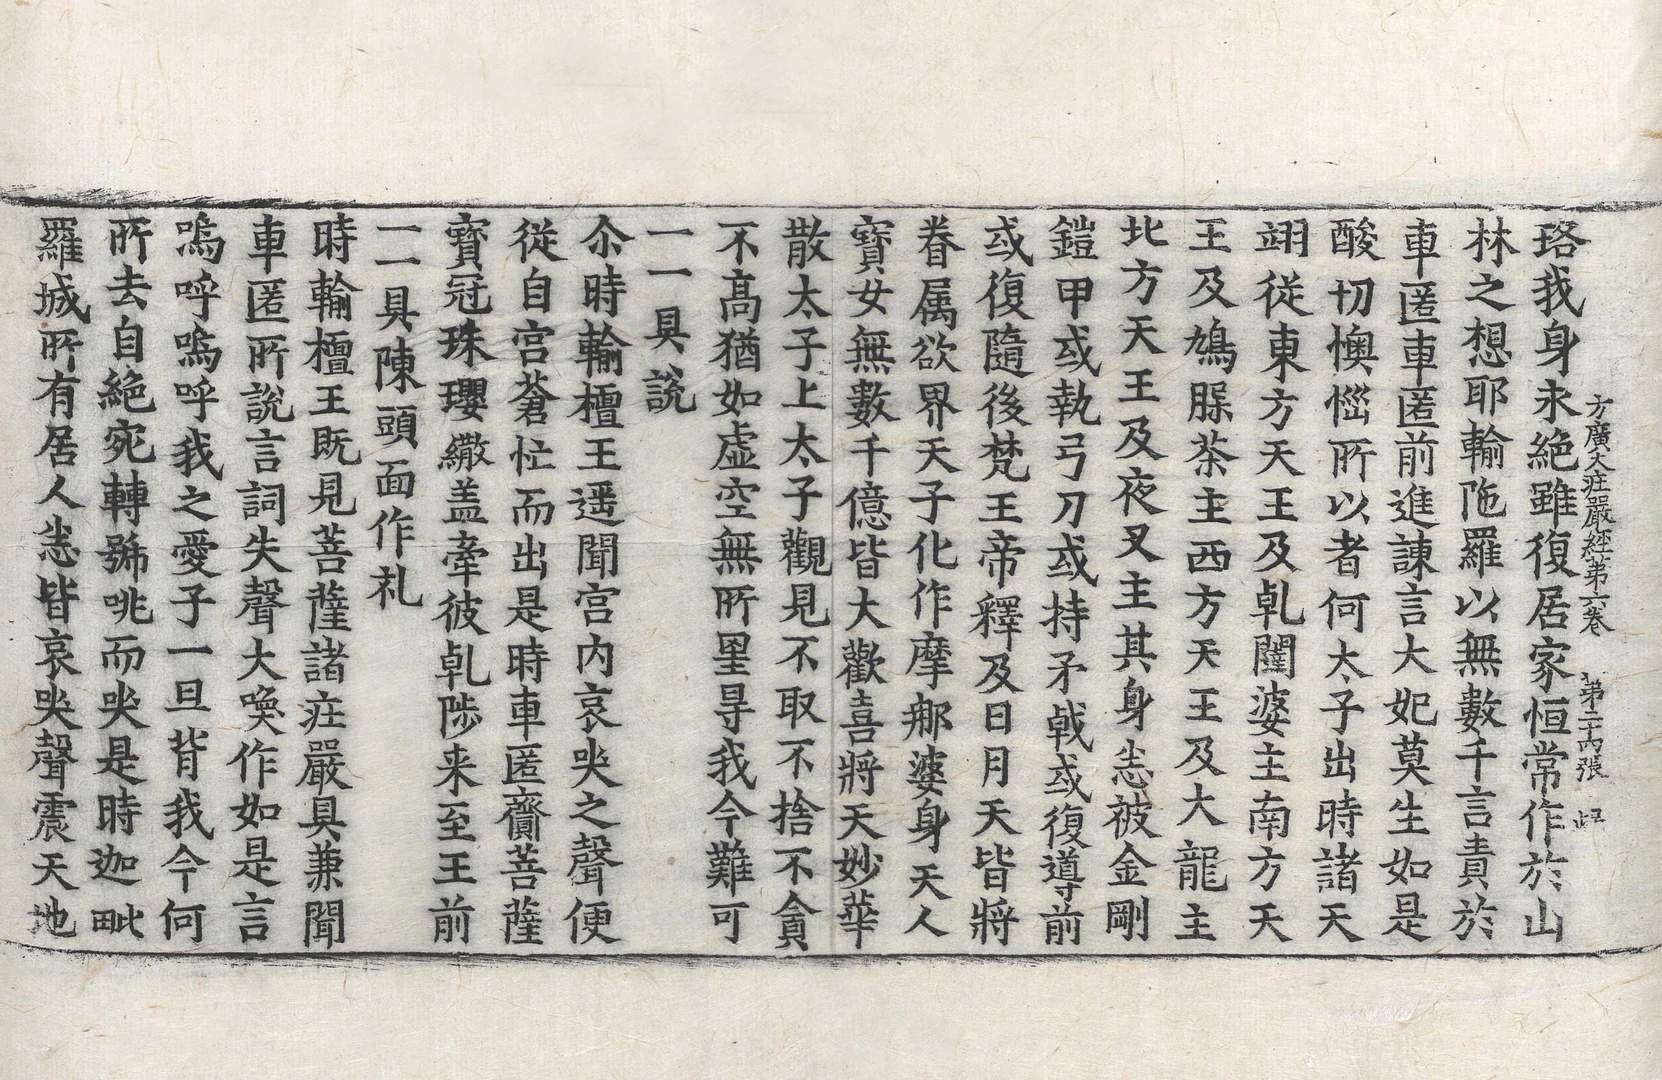 方廣大莊嚴經第六卷 第二十丙張 㟁
珞我身永絕雖復居家恒常作於山
林之想耶輸陁羅以無數千言責於
車匿車匿前進諫言大妃莫生如是
酸切懊惱所以者何太子出時諸天
翊從東方天王及乹闥婆主南方天
王及鳩膎茶主西方天王及大龍主
北方天王及夜叉主其身悉被金剛
鎧甲或執弓刀或持矛戟或復導前
或復隨後梵王帝釋及日月天皆將
眷属欲界天子化作摩那婆身天人
寶女無數千億皆大歡喜將天妙華
散太子上太子觀見不取不捨不貪
不高猶如虛空無所罣㝵我今難可
一一具說
尒時輸檀王遥聞宫內哀哭之聲便
從自宫蒼忙而出是時車匿齎菩薩
寶冠珠瓔繖盖牽彼乹陟来至王前
一一具陳頭面作礼
時輸檀王既見菩薩諸莊嚴具兼聞
車匿所說言詞失聲大喚作如是言
嗚呼嗚呼我之愛子一旦背我今何
所去自絕宛轉號咷而哭是時迦毗
羅城所有居人悉皆哀哭聲震天地